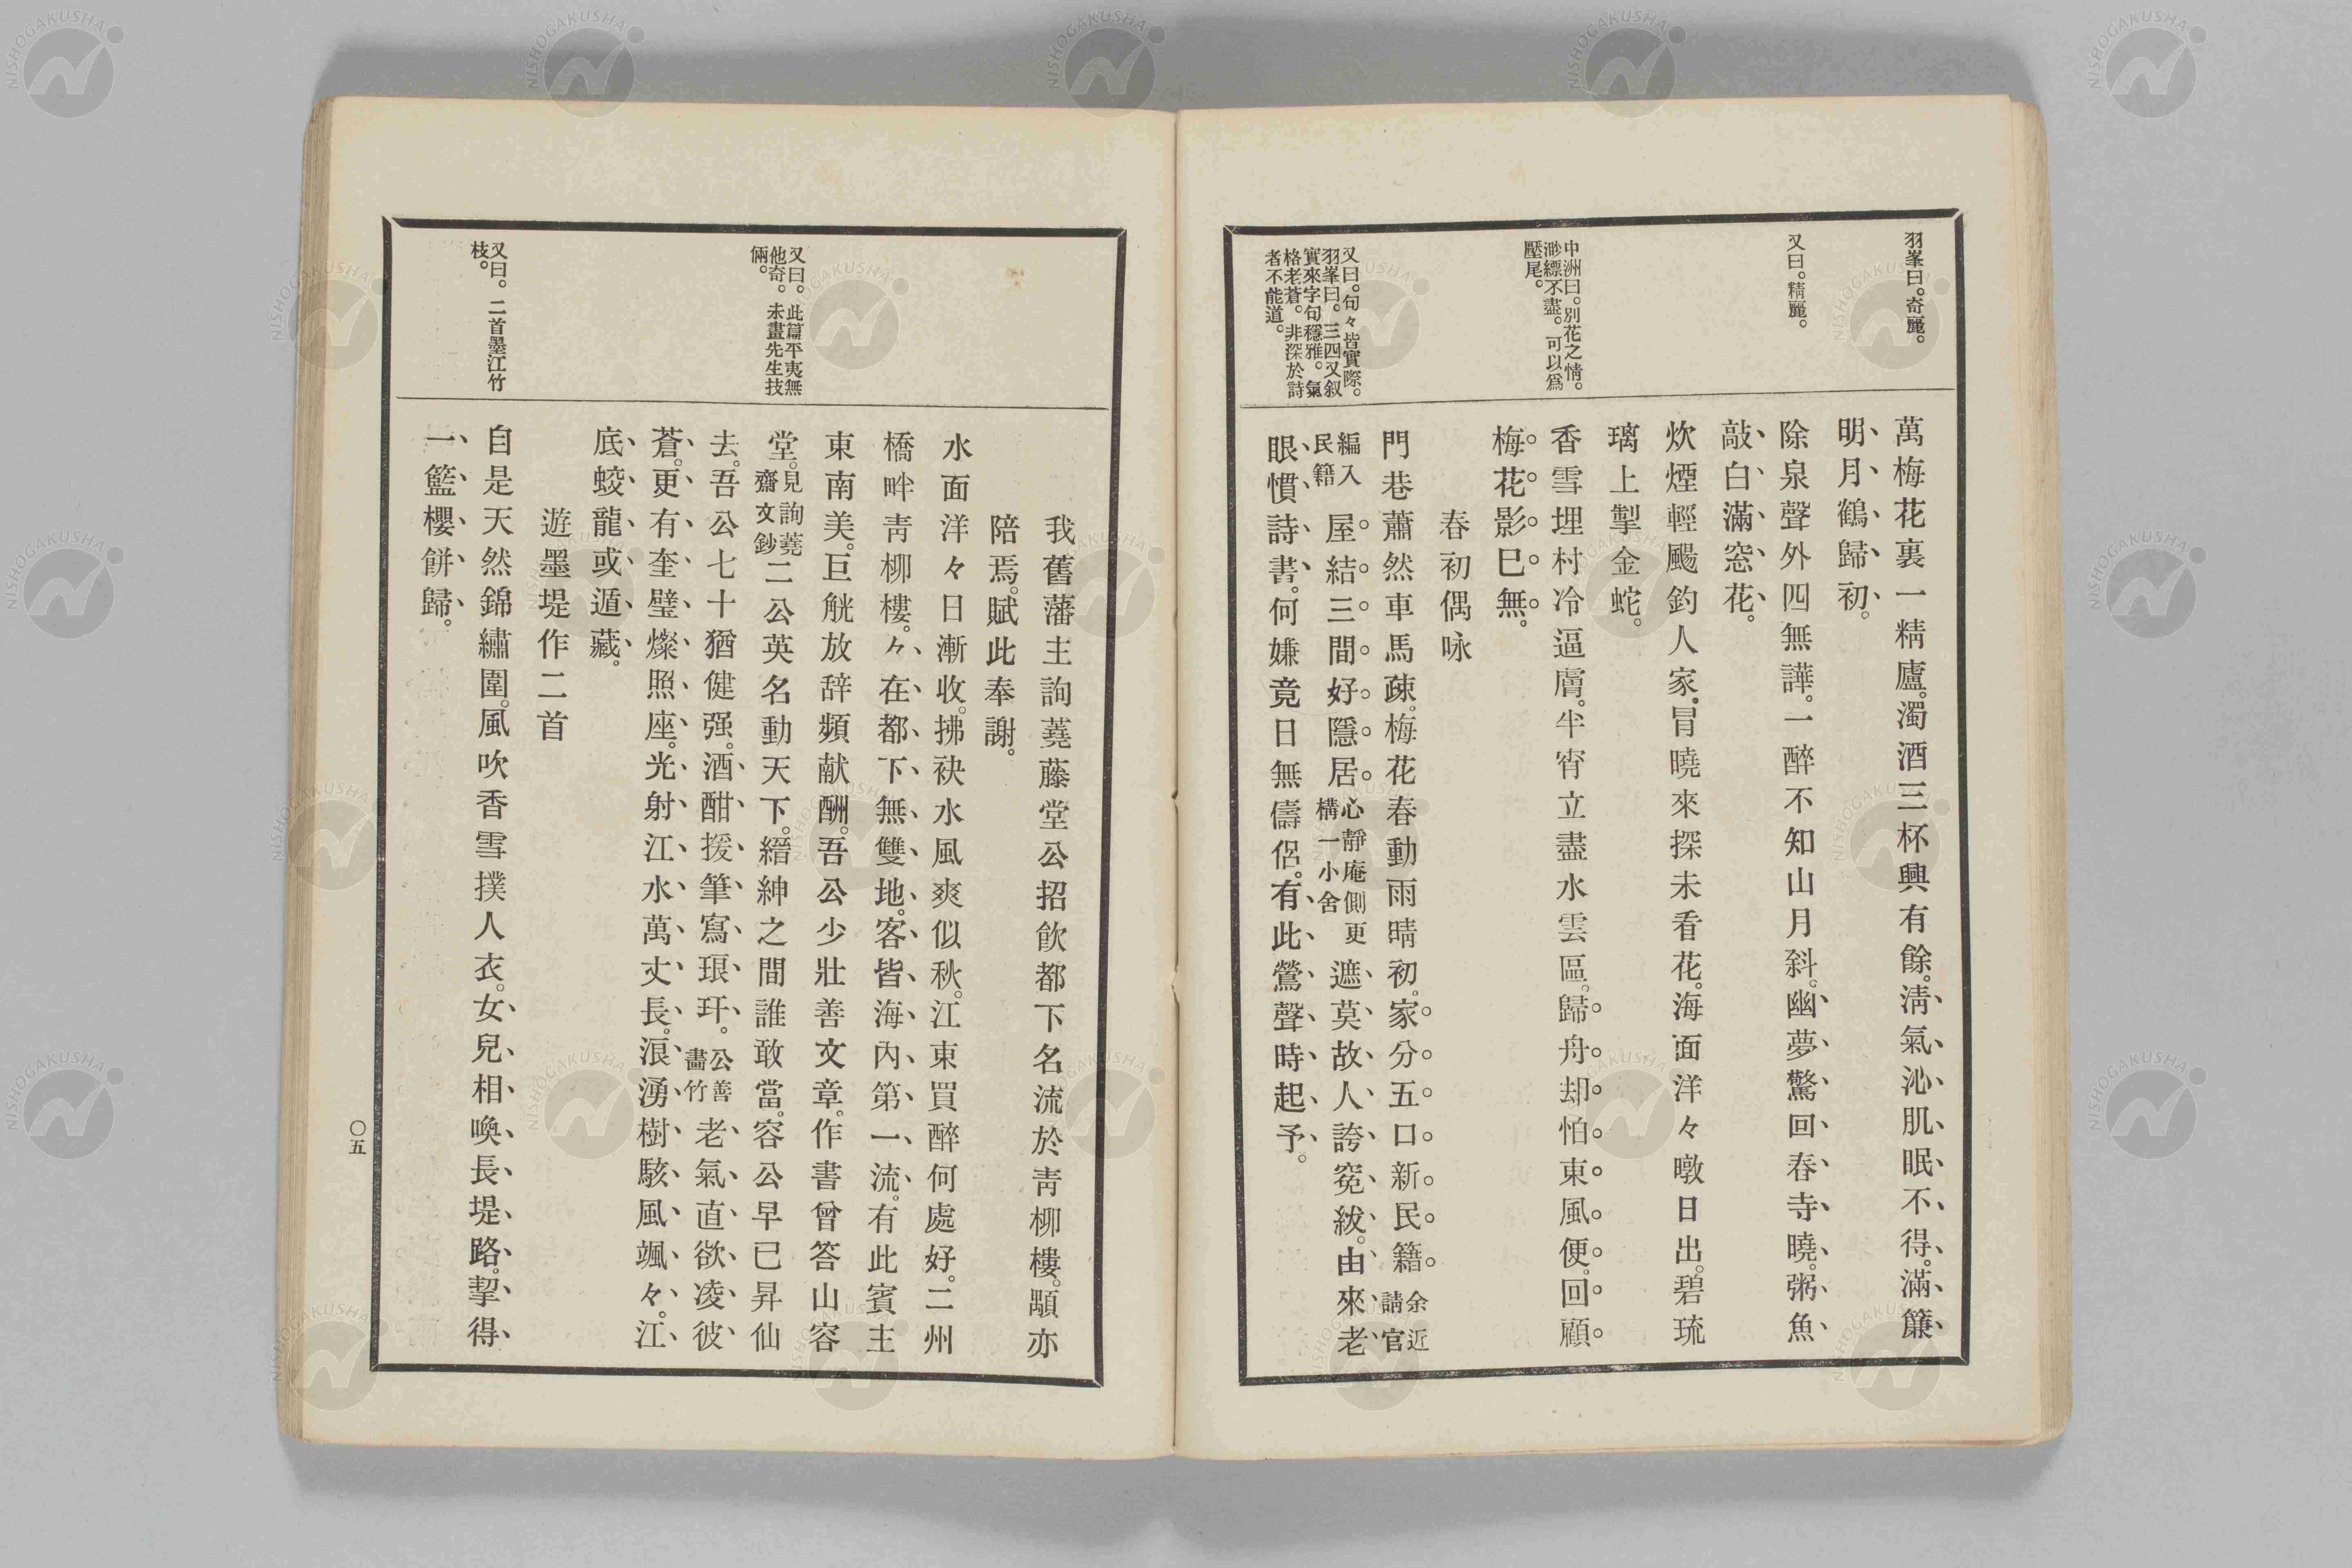 羽峯曰。奇麗。
又曰。精麗。
中洲曰。別花之情。
渺縹不盡。可以爲
壓尾。
又曰。句々皆實際。
羽峯曰。三四又叙
實來字句穩雅。氣
格老蒼。非深於詩
者不能道。
萬梅花裏一精廬。濁酒三杯興有餘。淸氣沁肌眠不得。滿簾
明月鶴歸初。
除泉聲外四無譁。一醉不知山月斜。幽夢驚回春寺曉。粥魚
敲白滿窓花。
炊煙輕颺釣人家。冐曉來探未看花。海面洋々暾日出。碧琉
璃上掣金蛇。
香雪埋村冷逼膚。半宵立盡水雲區。歸舟却怕東風便。回顧
梅花影巳無。
春初偶咏
門巷蕭然車馬疎。梅花春動雨晴初。家分五口新民籍余近請官
編入民籍屋結三間好隱居心靜庵側更構一小舍遮莫故人誇冕紱。由來老
眼慣詩書。何嫌竟日無儔侶。有此鶯聲時起予。
又曰。此篇平夷無
他奇。未畫先生技
倆。
又曰。二首墨江竹
枝。
我舊藩主詢蕘藤堂公招飮都下名流於靑柳樓。顒亦
陪焉。賦此奉謝。
水面洋々日漸收。拂袂水風爽似秋。江東買醉何處好。二州
橋畔靑柳樓。々在都下無雙地。客皆海內第一流。有此賓主
東南美。巨觥放辞頻献酬。吾公少壯善文章。作書曾答山容
堂。見詢蕘齋文鈔二公英名動天下。縉紳之間誰敢當。容公早已昇仙
去。吾公七十猶健强。酒酣援筆寫琅玕。公善畵竹老氣直欲凌彼
蒼。更有奎璧燦照座。光射江水萬丈長。浪湧樹駭風颯々。江
底蛟龍或遁藏。
遊墨堤作二首
自是天然錦繡圍。風吹香雪撲人衣。女兒相喚長堤路。挈得
一籃櫻餅歸。
〇五
NISHOGAKUSHA